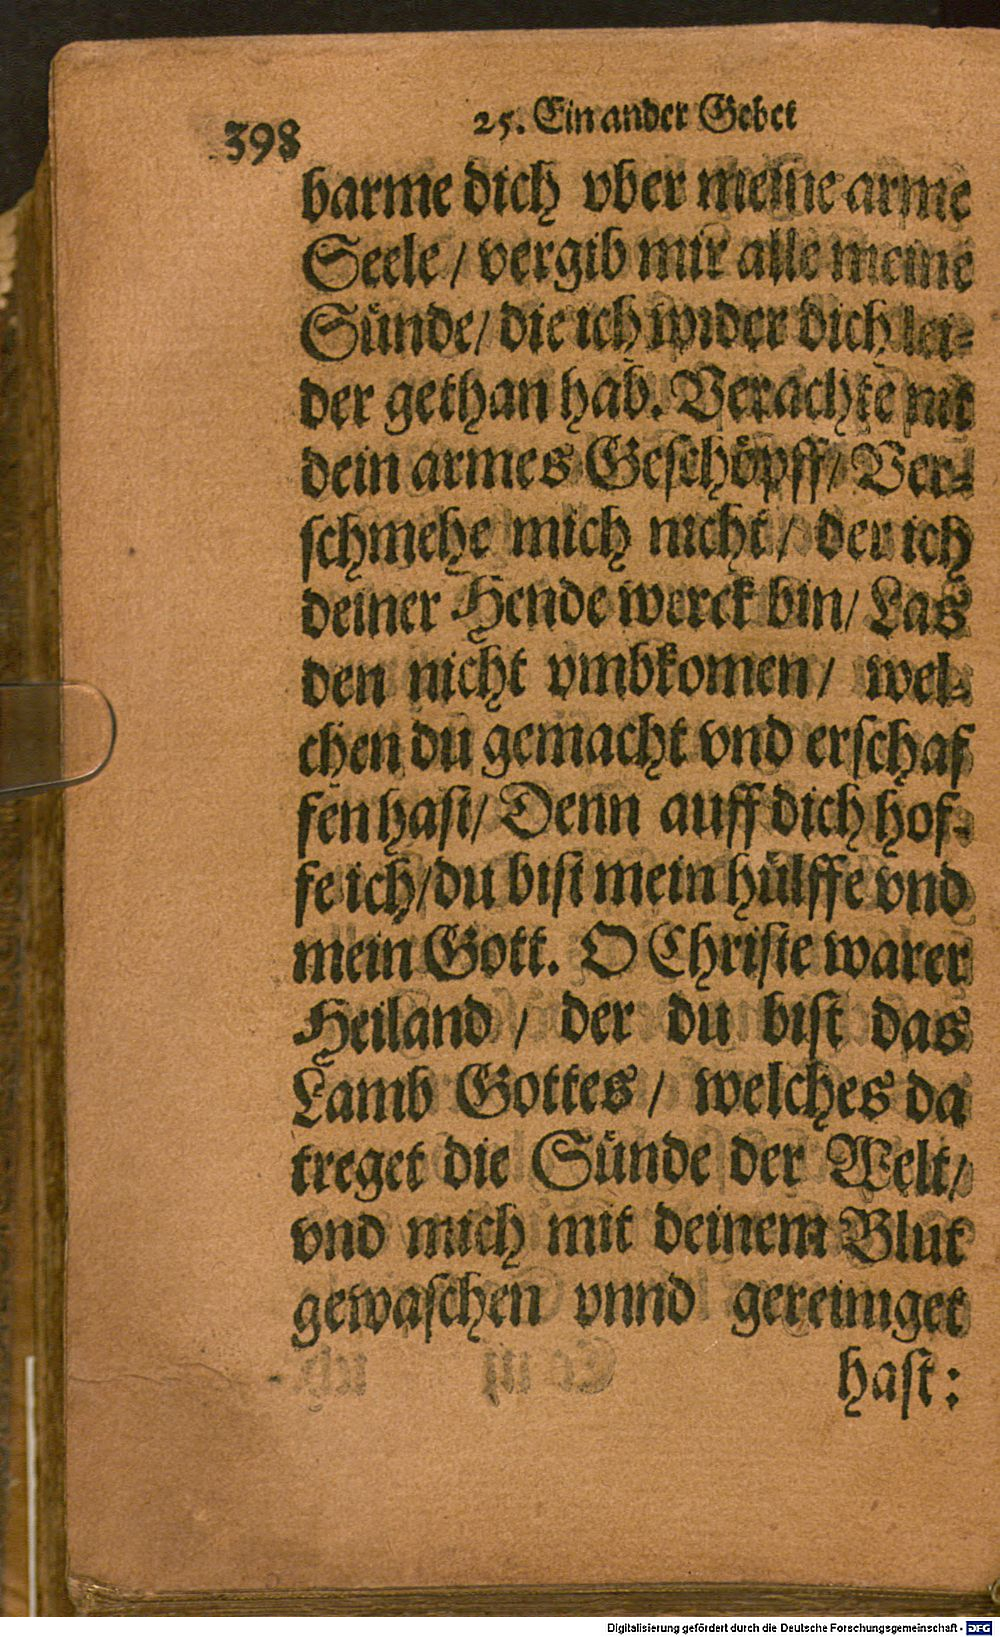 398
25. Ein ander Gebet
barme dich vber meine arme
Seele / vergib mir alle meine
Sünde / die ich wider dich lei-
der gethan hab. Verachte nit
dein armes Geschöpff / Ver-
schmehe mich nicht / der ich
deiner Hende werck bin / Las
den nicht vmbkomen / wel-
chen du gemacht vnd erschaf
fen hast / Denn auff dich hof-
fe ich / du bist mein hülffe vnd
mein Gott. O Christe warer
Heiland / der du bist das
Lamb Gottes / welches da
treget die Sünde der Welt /
vnd mich mit deinem Blut
gewaschen vnnd gereiniget
hast :
Digitalisierung gefördert durch die Deutsche Forschungsgemeinschaft - DFG